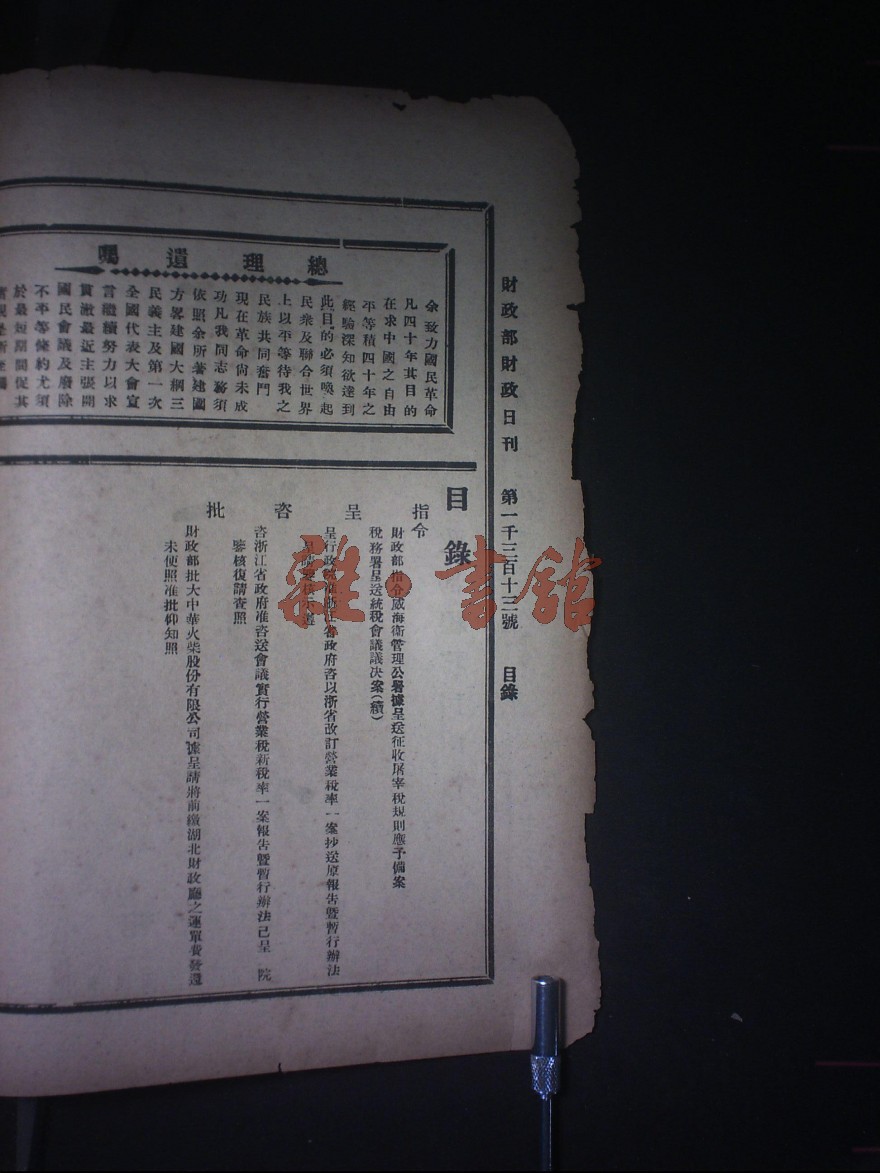 財政部財政日刊　第一千三百十三號　目錄
總理遺囑
余致力國民革命
凡四十年其目的
在求中國之自由
平等積四十年之
經驗深知欲達到
此目的必須喚起
民衆及聯合世界
上以平等待我之
民族共同奮鬥
現在革命尙未成
功凡我同志務須
依照余所著建國
方畧建國大綱三
民義主及第一次
全國代表大會宣
言繼續努力以求
貫澈最近主張開
國民會議及廢除
不平等條約尤須
於最短期間促其
目錄
指令
財政部指令威海衛管理公署據呈送征收屠宰稅規則應予備案
稅務署呈送統稅會議議决案(續)
呈
呈行政院 浙江省政府咨以浙省改訂營業稅率一案抄送原報吿暨暫行辦法
呈 示遵
咨
咨浙江省政府准咨送會議實行營業稅新稅率一案報吿暨暫行辦法已呈 院
鑒核復請查照
批
財政部批大中華火柴股份有限公司據呈請將前繳湖北財政廳之運單費發還
未便照准批仰知照
雜·書館